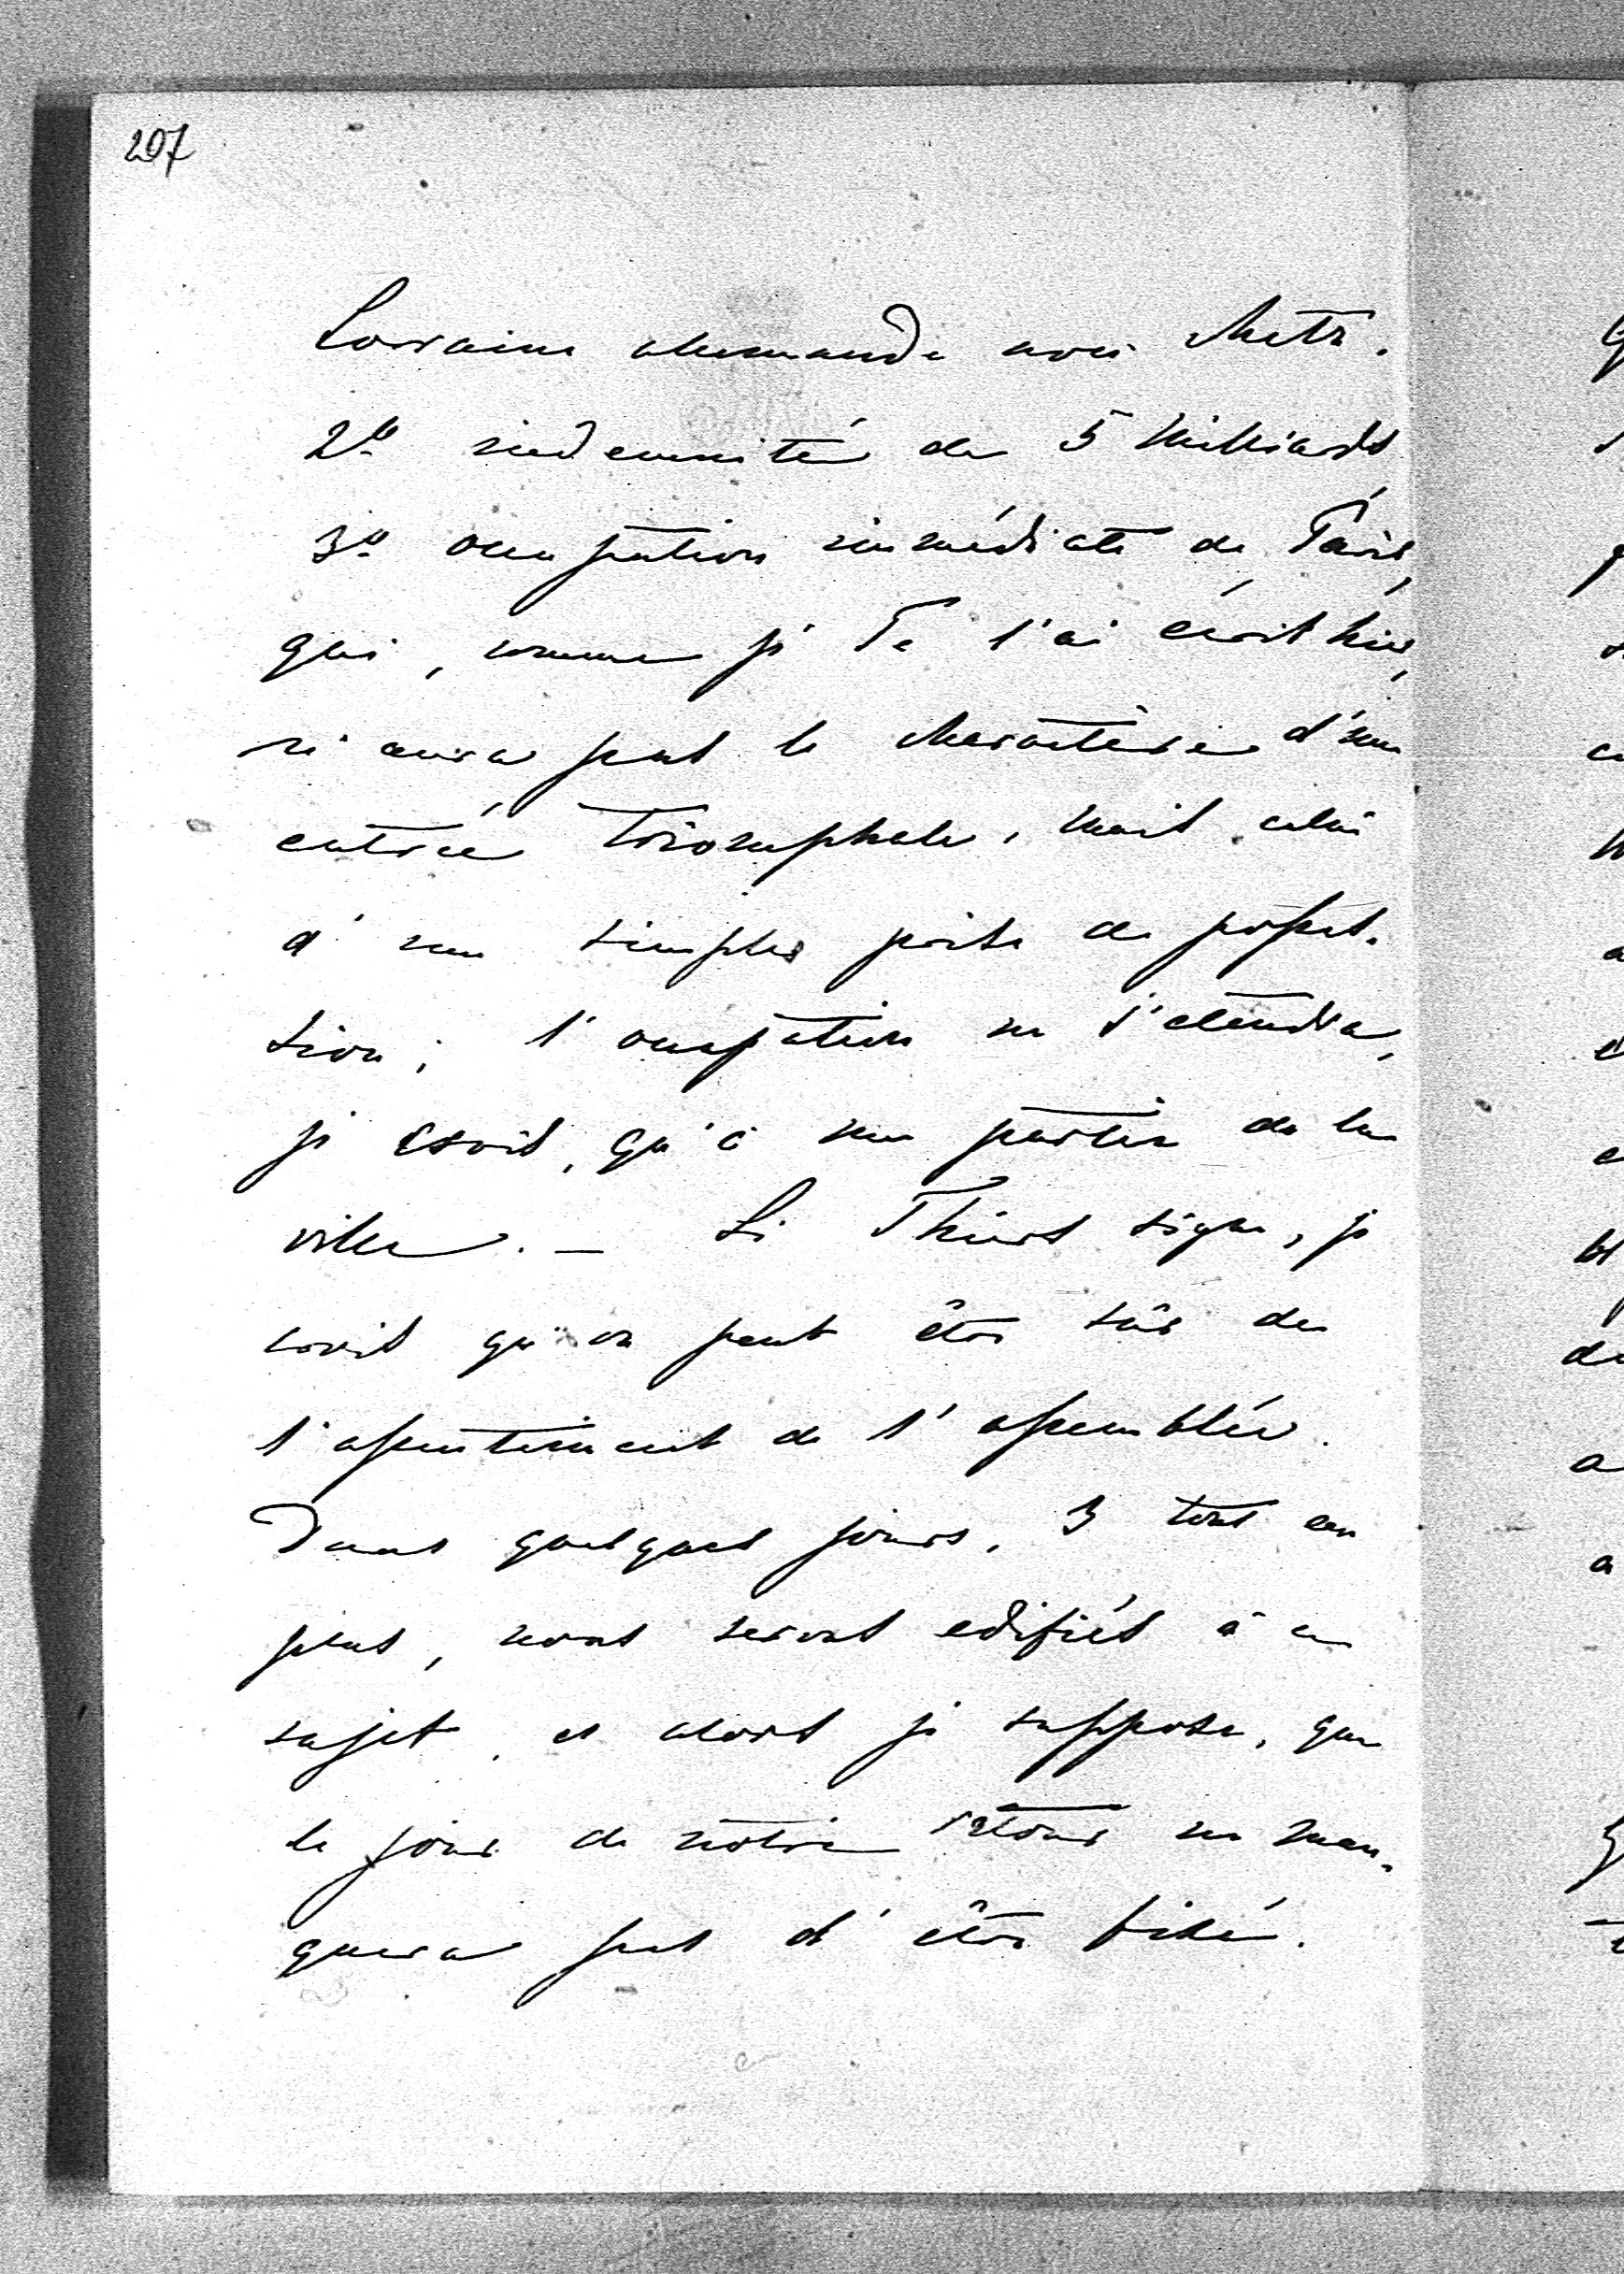 207
Lorraine allemande avec Metz.
2º indemnité de 5 milliards
3º occupation immédiate de Paris,
qui, comme je Te l'ai écrit hier,
n'aura pas le charactère d'une
entrée triomphale, mais celui
d'une simple prise de posses-
sion; l'occupation ne s'étendra,
je crois, qu'à une partie de la
ville. — Si Thiers signe, je
crois qu'on peut être sûr de
l'assentiment de l'assemblée.
Dans quelques jours, 3 tout au
plus, nous serons edifiés à ce
sujet, et alors je suppose, que
le jour de notre retour ne man-
quera pas d'être fixé.